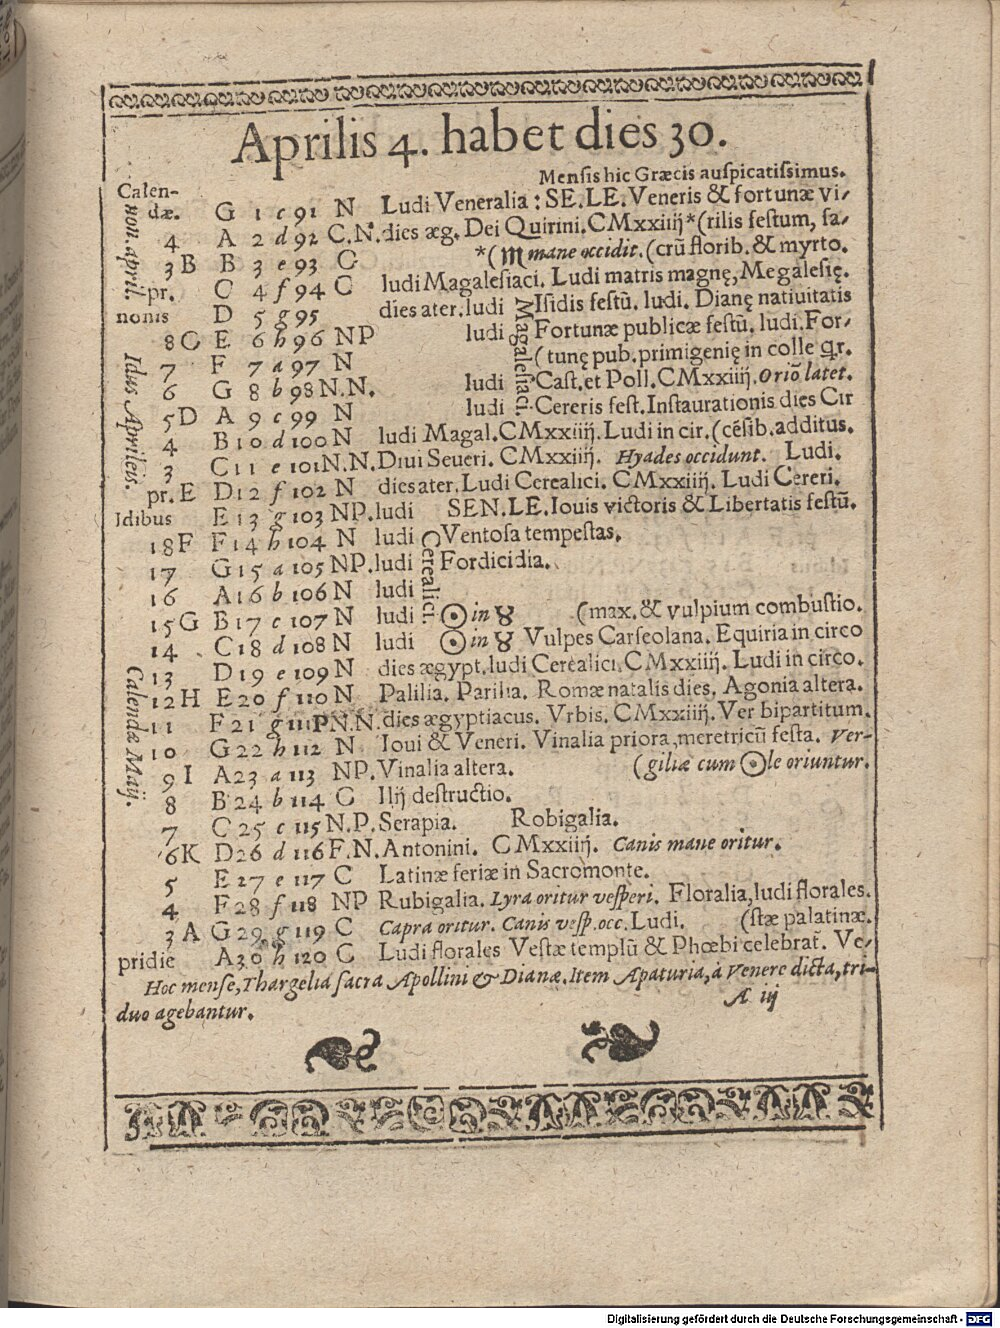 Aprilis 4. habet dies 30.
Mensis hic Græcis auspicatissimus.
Calen-
dæ. G 1 c 91 N Ludi Veneralia: SE.LE. Veneris & fortunæ vi/
4 A 2 d 92 C.N. dies æg. Dei Quirini. CMxxiiij *(rilis festum, sa/
3 B B 3 e 93 C *(♏ mane occidit. (crũ florib. & myrto.
pr. C 4 f 94 C ludi Magalesiaci. Ludi matris magnę, Megalesię.
nonis D 5 g 95 dies ater. ludi Isidis festũ. ludi. Dianę natiuitatis
8 C E 6 h 96 NP ludi Fortunæ publicæ festũ. ludi. For/
7 F 7 a 97 N (tunę pub. primigenię in colle qr.
6 G 8 b 98 N.N. ludi Cast. et Poll. CMxxiiij. Oriõ latet.
5 D A 9 c 99 N ludi Cereris fest. Instaurationis dies Cir
4 B 10 d 100 N ludi Magal. CMxxiiij. Ludi in cir. (césib. additus.
3 C 11 e 101 N.N. Diui Seueri. CMxxiiij. Hyades occidunt. Ludi.
pr. E D 12 f 102 N dies ater. Ludi Cerealici. CMxxiiij. Ludi Cereri.
Idibus E 13 g 103 NP. ludi SEN.LE. Iouis victoris & Libertatis festũ.
18 F F 14 h 104 N ludi Ventosa tempestas.
17 G 15 a 105 NP. ludi Fordicidia.
16 A 16 b 106 N ludi
15 G B 17 c 107 N ludi ☉ in ♉ (max. & vulpium combustio.
14 C 18 d 108 N ludi ☉ in ♉ Vulpes Carseolana. Equiria in circo
13 D 19 e 109 N dies ægypt. ludi Cerealici. CMxxiiij. Ludi in circo.
12 H E 20 f 110 N Palilia. Parilia. Romæ natalis dies. Agonia altera.
11 F 21 g 111 PN.N. dies ægyptiacus. Vrbis. CMxxiiij. Ver bipartitum.
10 G 22 h 112 N Ioui & Veneri. Vinalia priora, meretricũ festa. Ver-
9 I A 23 a 113 NP. Vinalia altera. (giliæ cum ☉le oriuntur.
8 B 24 b 114 C Ilij destructio.
7 C 25 c 115 N.P. Serapia. Robigalia.
6 K D 26 d 116 F.N. Antonini. CMxxiiij. Canis mane oritur.
5 E 27 e 117 C Latinæ feriæ in Sacromonte.
4 F 28 f 118 NP Rubigalia. Lyra oritur vesperi. Floralia, ludi florales.
3 A G 29 g 119 C Capra oritur. Canis vesp. occ. Ludi. (stæ palatinæ.
pridie A 30 h 120 C Ludi florales Vestæ templũ & Phœbi celebrat̃. Ve/
non. april.
Idus Aprileis.
Calendæ Maij.
Magalesiaci.
Cerealici.
Hoc mense, Thargelia sacra Apollini & Dianæ. Item Apaturia, à Venere dicta, tri-
duo agebantur.
A iij
Digitalisierung gefördert durch die Deutsche Forschungsgemeinschaft - DFG